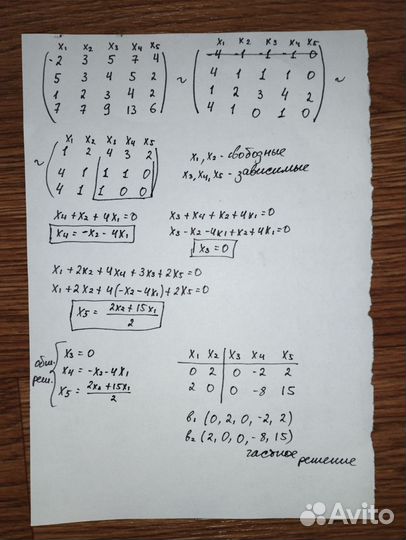 x₁ x₂ x₃ x₄ x₅
-2 3 5 7 4
5 3 4 5 2
1 2 3 4 2
7 7 9 13 6
~
x₁ x₂ x₃ x₄ x₅
-4 -1 -1 -1 0
4 1 1 1 0
1 2 3 4 2
4 1 0 1 0
~
~
x₁ x₂ x₃ x₄ x₅
1 2 4 3 2
4 1 1 1 0
4 1 1 0 0
x₁, x₂ - свободные
x₃, x₄, x₅ - зависимые
x₄ + x₂ + 4x₁ = 0
x₄ = -x₂ - 4x₁
x₃ + x₄ + x₂ + 4x₁ = 0
x₃ - x₂ - 4x₁ + x₂ + 4x₁ = 0
x₃ = 0
x₁ + 2x₂ + 4x₄ + 3x₃ + 2x₅ = 0
x₁ + 2x₂ + 4(-x₂ - 4x₁) + 2x₅ = 0
x₅ = (2x₂ + 15x₁)/2
общ. реш.
x₃ = 0
x₄ = -x₂ - 4x₁
x₅ = (2x₂ + 15x₁)/2
x₁ x₂ x₃ x₄ x₅
0 2 0 -2 2
2 0 0 -8 15
в₁ (0, 2, 0, -2, 2)
в₂ (2, 0, 0, -8, 15)
частное решение
Avito